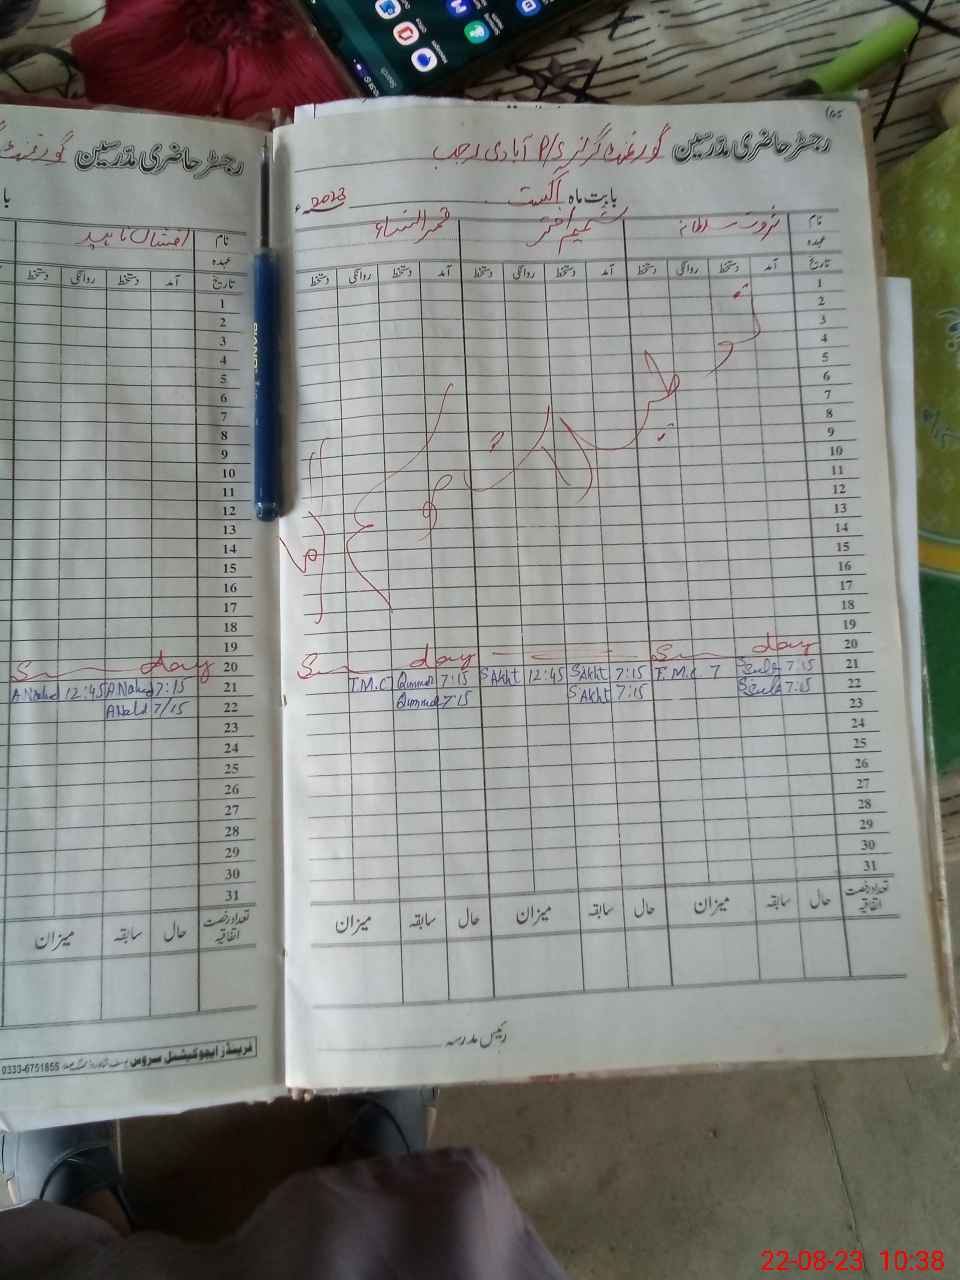 رجسٹر حاضری مدرسین گورنمنٹ گرلز P/S آبادی رجب
بابت ماہ اگست 2023ء
نام ثروت سلطانہ شمیم اختر قمر النساء
عہدہ
تاریخ آمد دستخط روانگی دستخط آمد دستخط روانگی دستخط آمد دستخط روانگی دستخط
1
2
3
4
5
6
7
8
9
10
11
12
13
14
15
16
17
18
19
20 Sunday Sunday
21 7:15 T.M.C 7 7:15 SAkht 12:45 SAkht 7:15 Qummar T.M.C
22 7:15 7:15 SAkht 7:15 Qummar
23
24
25
26
27
28
29
30
31
تعداد رخصت اتفاقیہ حال سابقہ میزان حال سابقہ میزان حال سابقہ میزان
رئیس مدرسہ
رجسٹر حاضری مدرسین گورنمنٹ
نام افشاں ناہید
عہدہ
تاریخ آمد دستخط روانگی دستخط
1
2
3
4
5
6
7
8
9
10
11
12
13
14
15
16
17
18
19
20 Sunday
21 7:15 ANahed 12:45 ANahed
22 7/15
23
24
25
26
27
28
29
30
31
تعداد رخصت اتفاقیہ حال سابقہ میزان
فرینڈز ایجوکیشنل سروس 0333-6751855
22-08-23 10:38